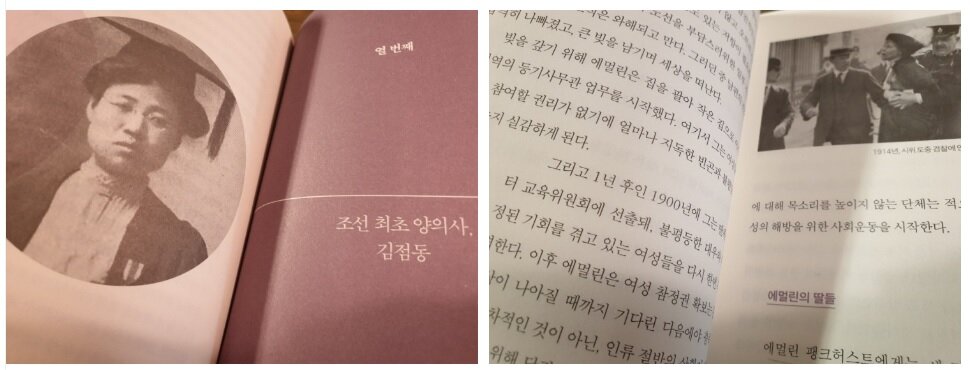 열 번째
조선 최초 양의사,
김점동
나빠졌고, 큰 빚을 남기며 세상을 떠난다.
빚을 갚기 위해 에멀린은 집을 팔아 작은 집으로
등기사무관 업무를 시작했다. 여기서 그는
참여할 권리가 없기에 얼마나 지독한 빈곤과
실감하게 된다.
그리고 1년 후인 1900년에 그는
터 교육위원회에 선출돼, 불평등한 대우와
정된 기회를 겪고 있는 여성들을 다시 한번
한다. 이후 에멀린은 여성 참정권 확보는
이 나아질 때까지 기다린 다음에야
차적인 것이 아닌, 인류 절반의
위해
1914년, 시위 도중 경찰에
에 대해 목소리를 높이지 않는 단체는 적으
성의 해방을 위한 사회운동을 시작한다.
에멀린의 딸들
에멀린 팽크허스트에게는